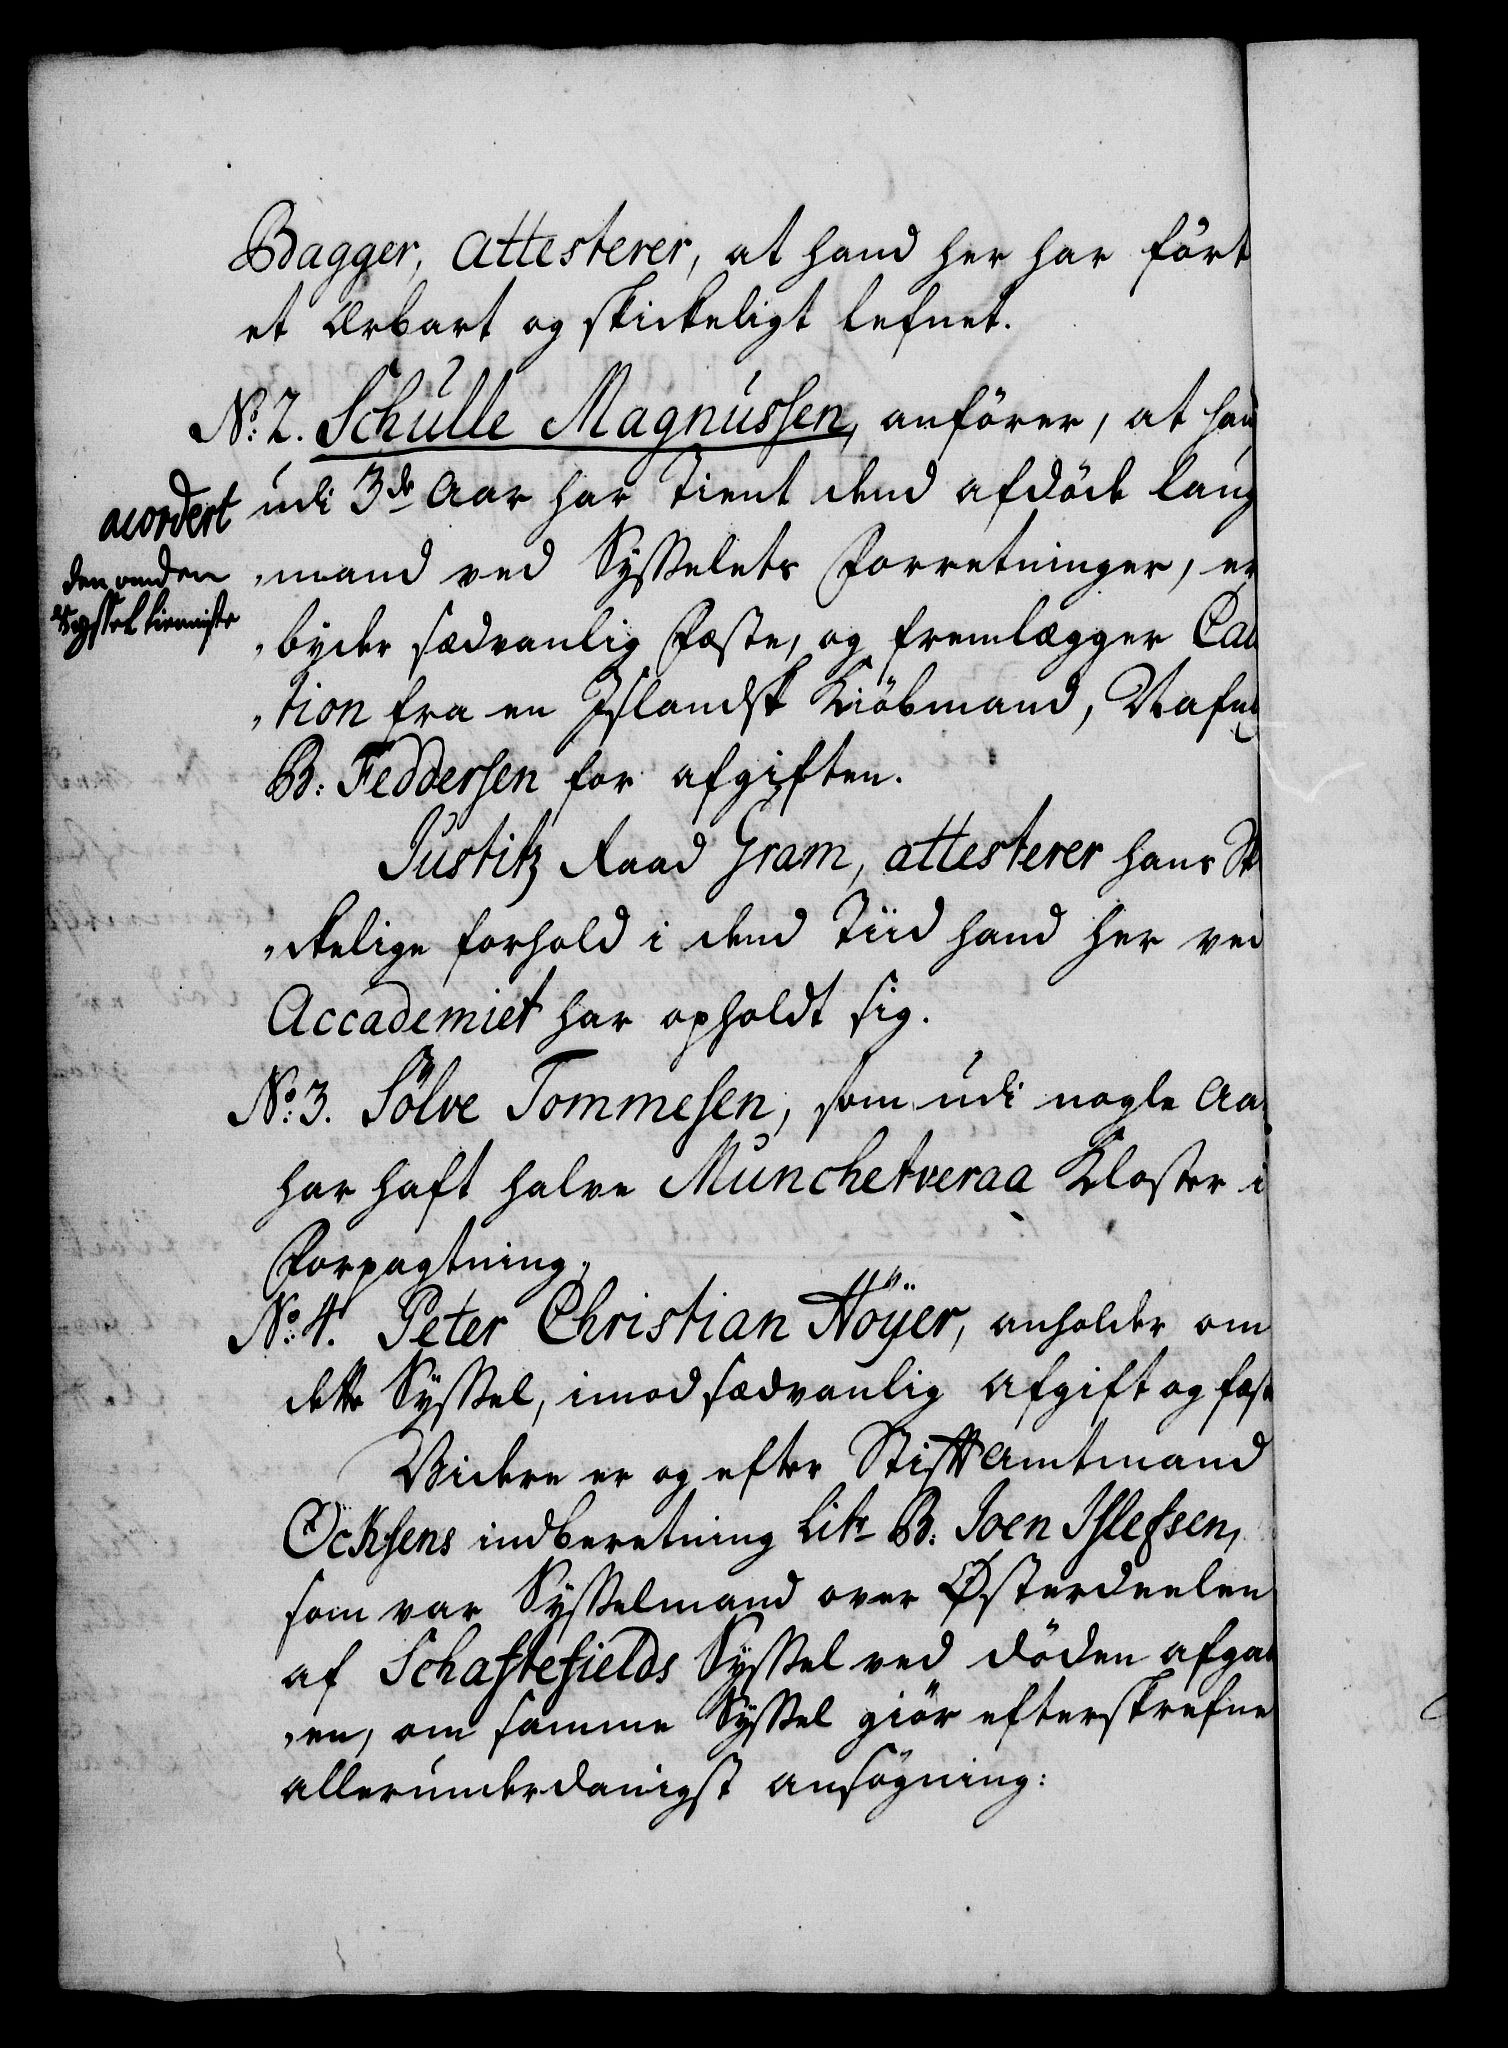 Bagger, attesterer, at hand her har fört
et ærbart og skickeligt lefnet.
No: 2. Schulle Magnussen, anförer, at han
udi 3de Aar har tient dend afdöde laug
„mand ved Sysselets Forretninger, er
„byder sædvanlig Fæste, og fremlægger Cau
„tion fra en Islandsk Kiöbmand, Nafnl
B: Feddersen for afgiften.
Justitz Raad Gram, attesterer hans Ski
„ckelige forhold i dend Tiid hand her ved
Accademiet har opholdt sig.
No: 3. Sölve Tommesen, som udi nogle Aar
har haft halve Munchetveraa Kloster i
Forpagtning.
No: 4. Peter Christian Höÿer, anholder om
dette Syssel, imod sædvanlig Afgift og fæste
Videre er og efter Stifft Amtmand
Ochsens indberetning Litr B: Joen Islefsen,
som var Sysselmand over Østerdeelen
af Schaftefields Syssel ved döden afgaa
„en, om samme Syssel giör efterskrefne
allerunderdanigst ansögning:
acordert
den anden
Syssel